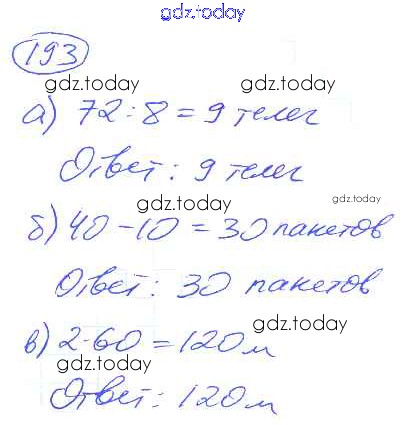 gdz.today
193
gdz.today gdz.today
а) 72:8 = 9 телег
Ответ: 9 телег
gdz.today gdz.today
б) 40-10 = 30 пакетов
Ответ: 30 пакетов
gdz.today
в) 2·60 = 120 м
gdz.today
Ответ: 120 м
gdz.today